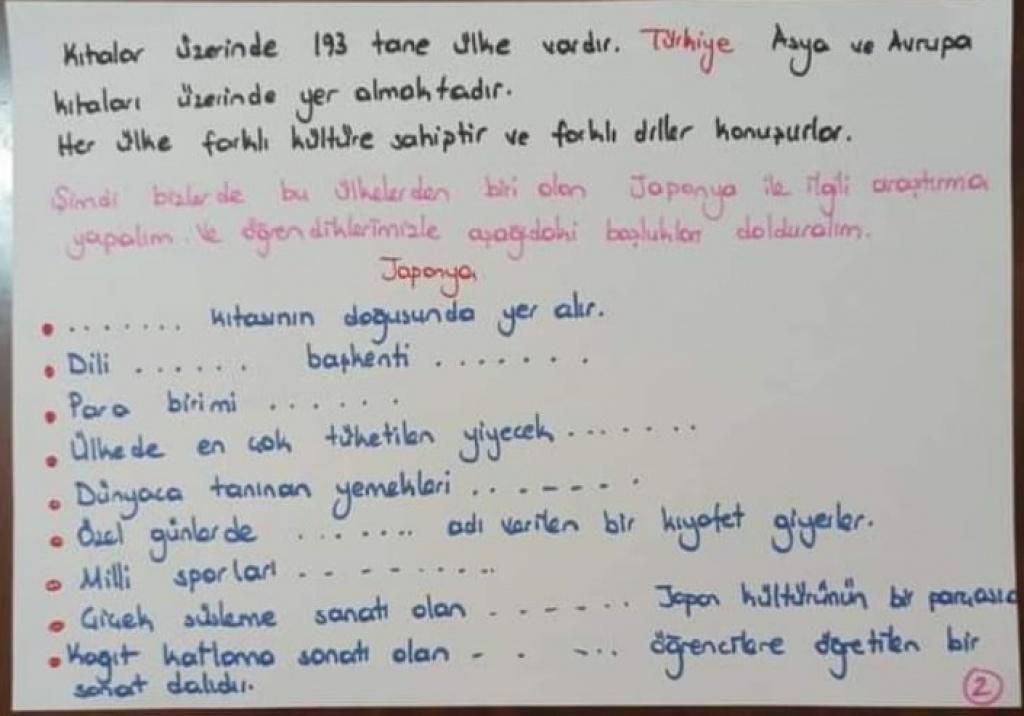 Kıtalar üzerinde 193 tane ülke vardır. Türkiye Asya ve Avrupa
kıtaları üzerinde yer almaktadır.
Her ülke farklı kültüre sahiptir ve farklı diller konuşurlar.
Şimdi bizlerde bu ülkelerden biri olan Japonya ile ilgili araştırma
yapalım. Ve öğrendiklerimizle aşağıdaki boşlukları dolduralım.
Japonya
• ....... kıtasının doğusunda yer alır.
• Dili ...... başkenti .......
• Para birimi ......
• Ülkede en çok tüketilen yiyecek .......
• Dünyaca tanınan yemekleri ..------.
• Özel günlerde ....... adı verilen bir kıyafet giyerler.
• Milli sporları .-------..
• Çiçek süsleme sanatı olan ----... Japon kültürünün bir parçasıd
• Kağıt katlama sanatı olan - . -... öğrencilere öğretilen bir
sanat dalıdır.
2